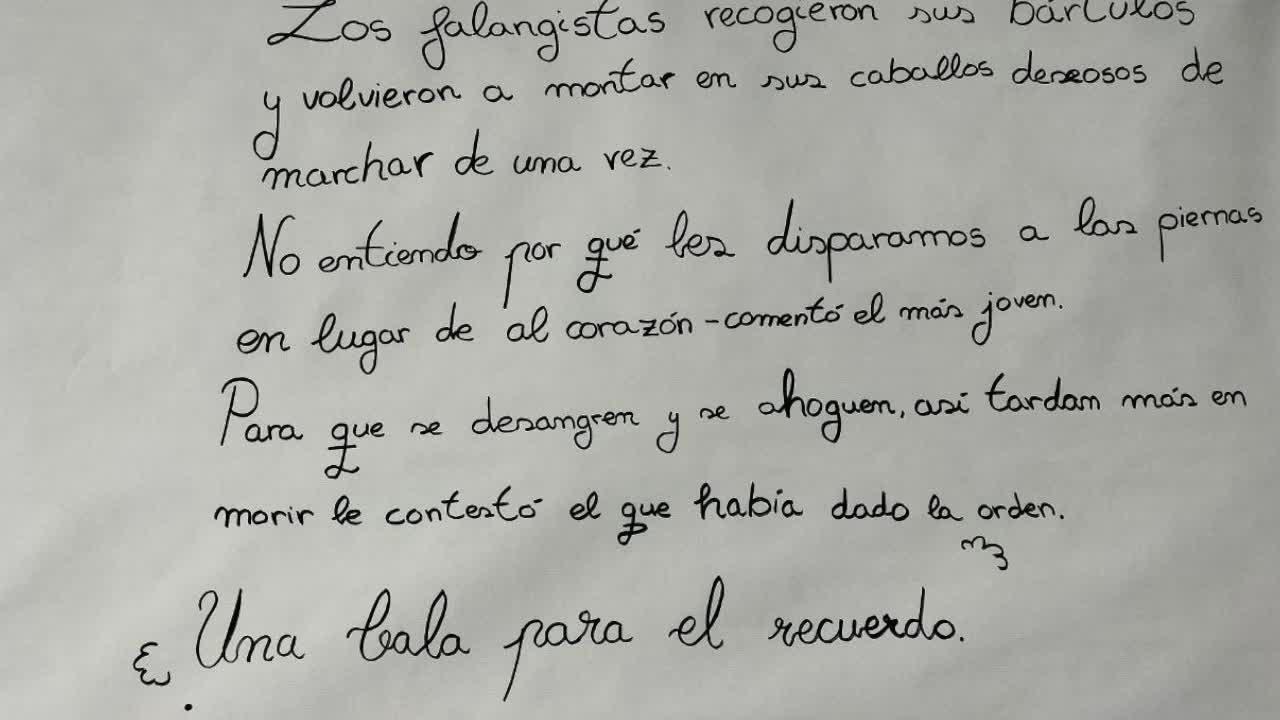 Los falangistas recogieron sus bártulos
y volvieron a montar en sus caballos deseosos de
marchar de una vez.
No entiendo por qué les disparamos a las piernas
en lugar de al corazón -comentó el más joven.
Para que se desangren y se ahoguen, así tardan más en
morir le contestó el que había dado la orden.
Una bala para el recuerdo.